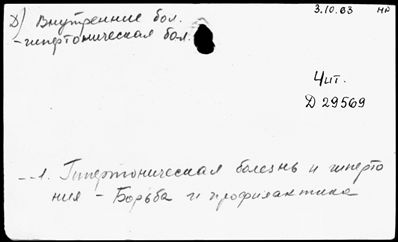 Д) Внутренние бол.
-гипертоническая бол.
3.10.63 НР
Чит.
Д 29569
--1. Гипертоническая болезнь и гиперто
ния - Борьба и профилактика